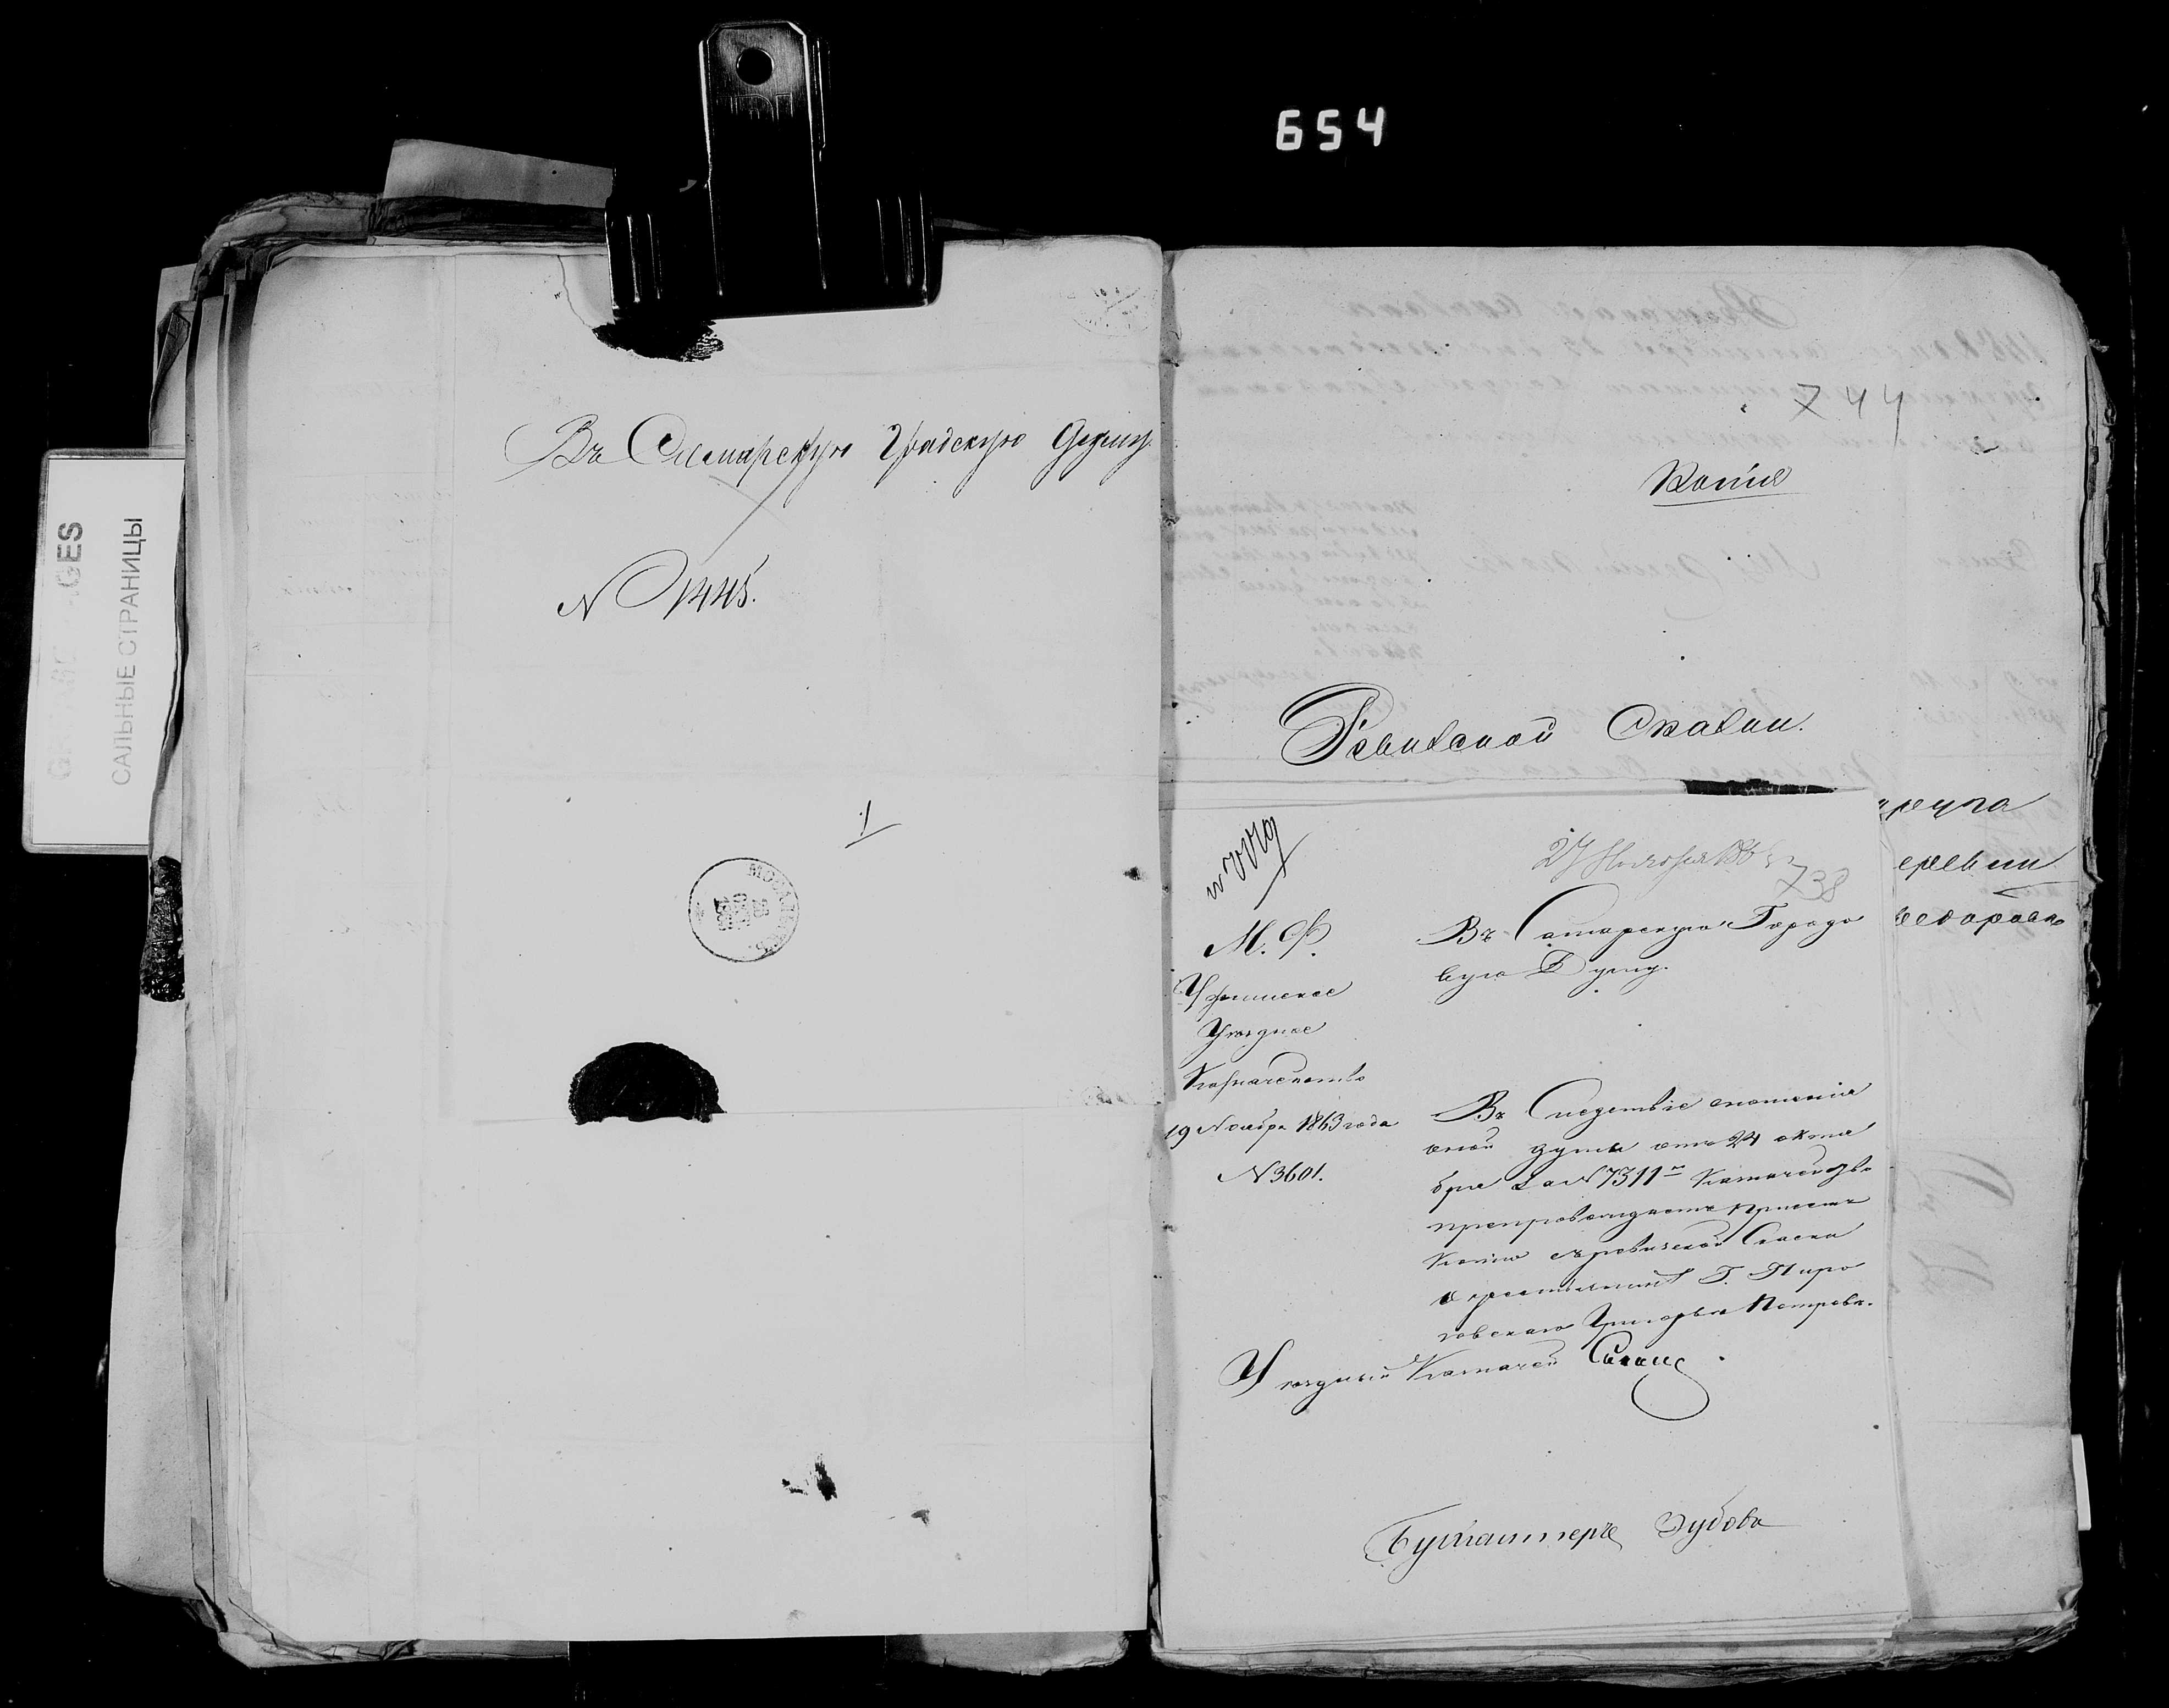 654
GES
САЛЬНЫЕ СТРАНИЦЫ
Въ Самарскую Градскую Думу.
N 1445.
1
МОСАЛЬСКЪ
744
Копія
Ревизской Сказки.
округа
еревни
едоровк
27 Ноября 186
738
М. Ф.
Уфимское
Уѣздное
Казначейство
19 Ноября 1863 года
N 3601.
Въ Самарскую Городо
вую Думу.
Въ Следствіе отношенія
оной думы отъ 24 октя
бря за N 7311 Казначейство
препровождаетъ при семъ
Копію съ ревизской Сказки
о крестьянинѣ Г. Пиро
говскаго Григорья Петрова.
Уѣздный Казначей
Бухгалтеръ Зубовъ